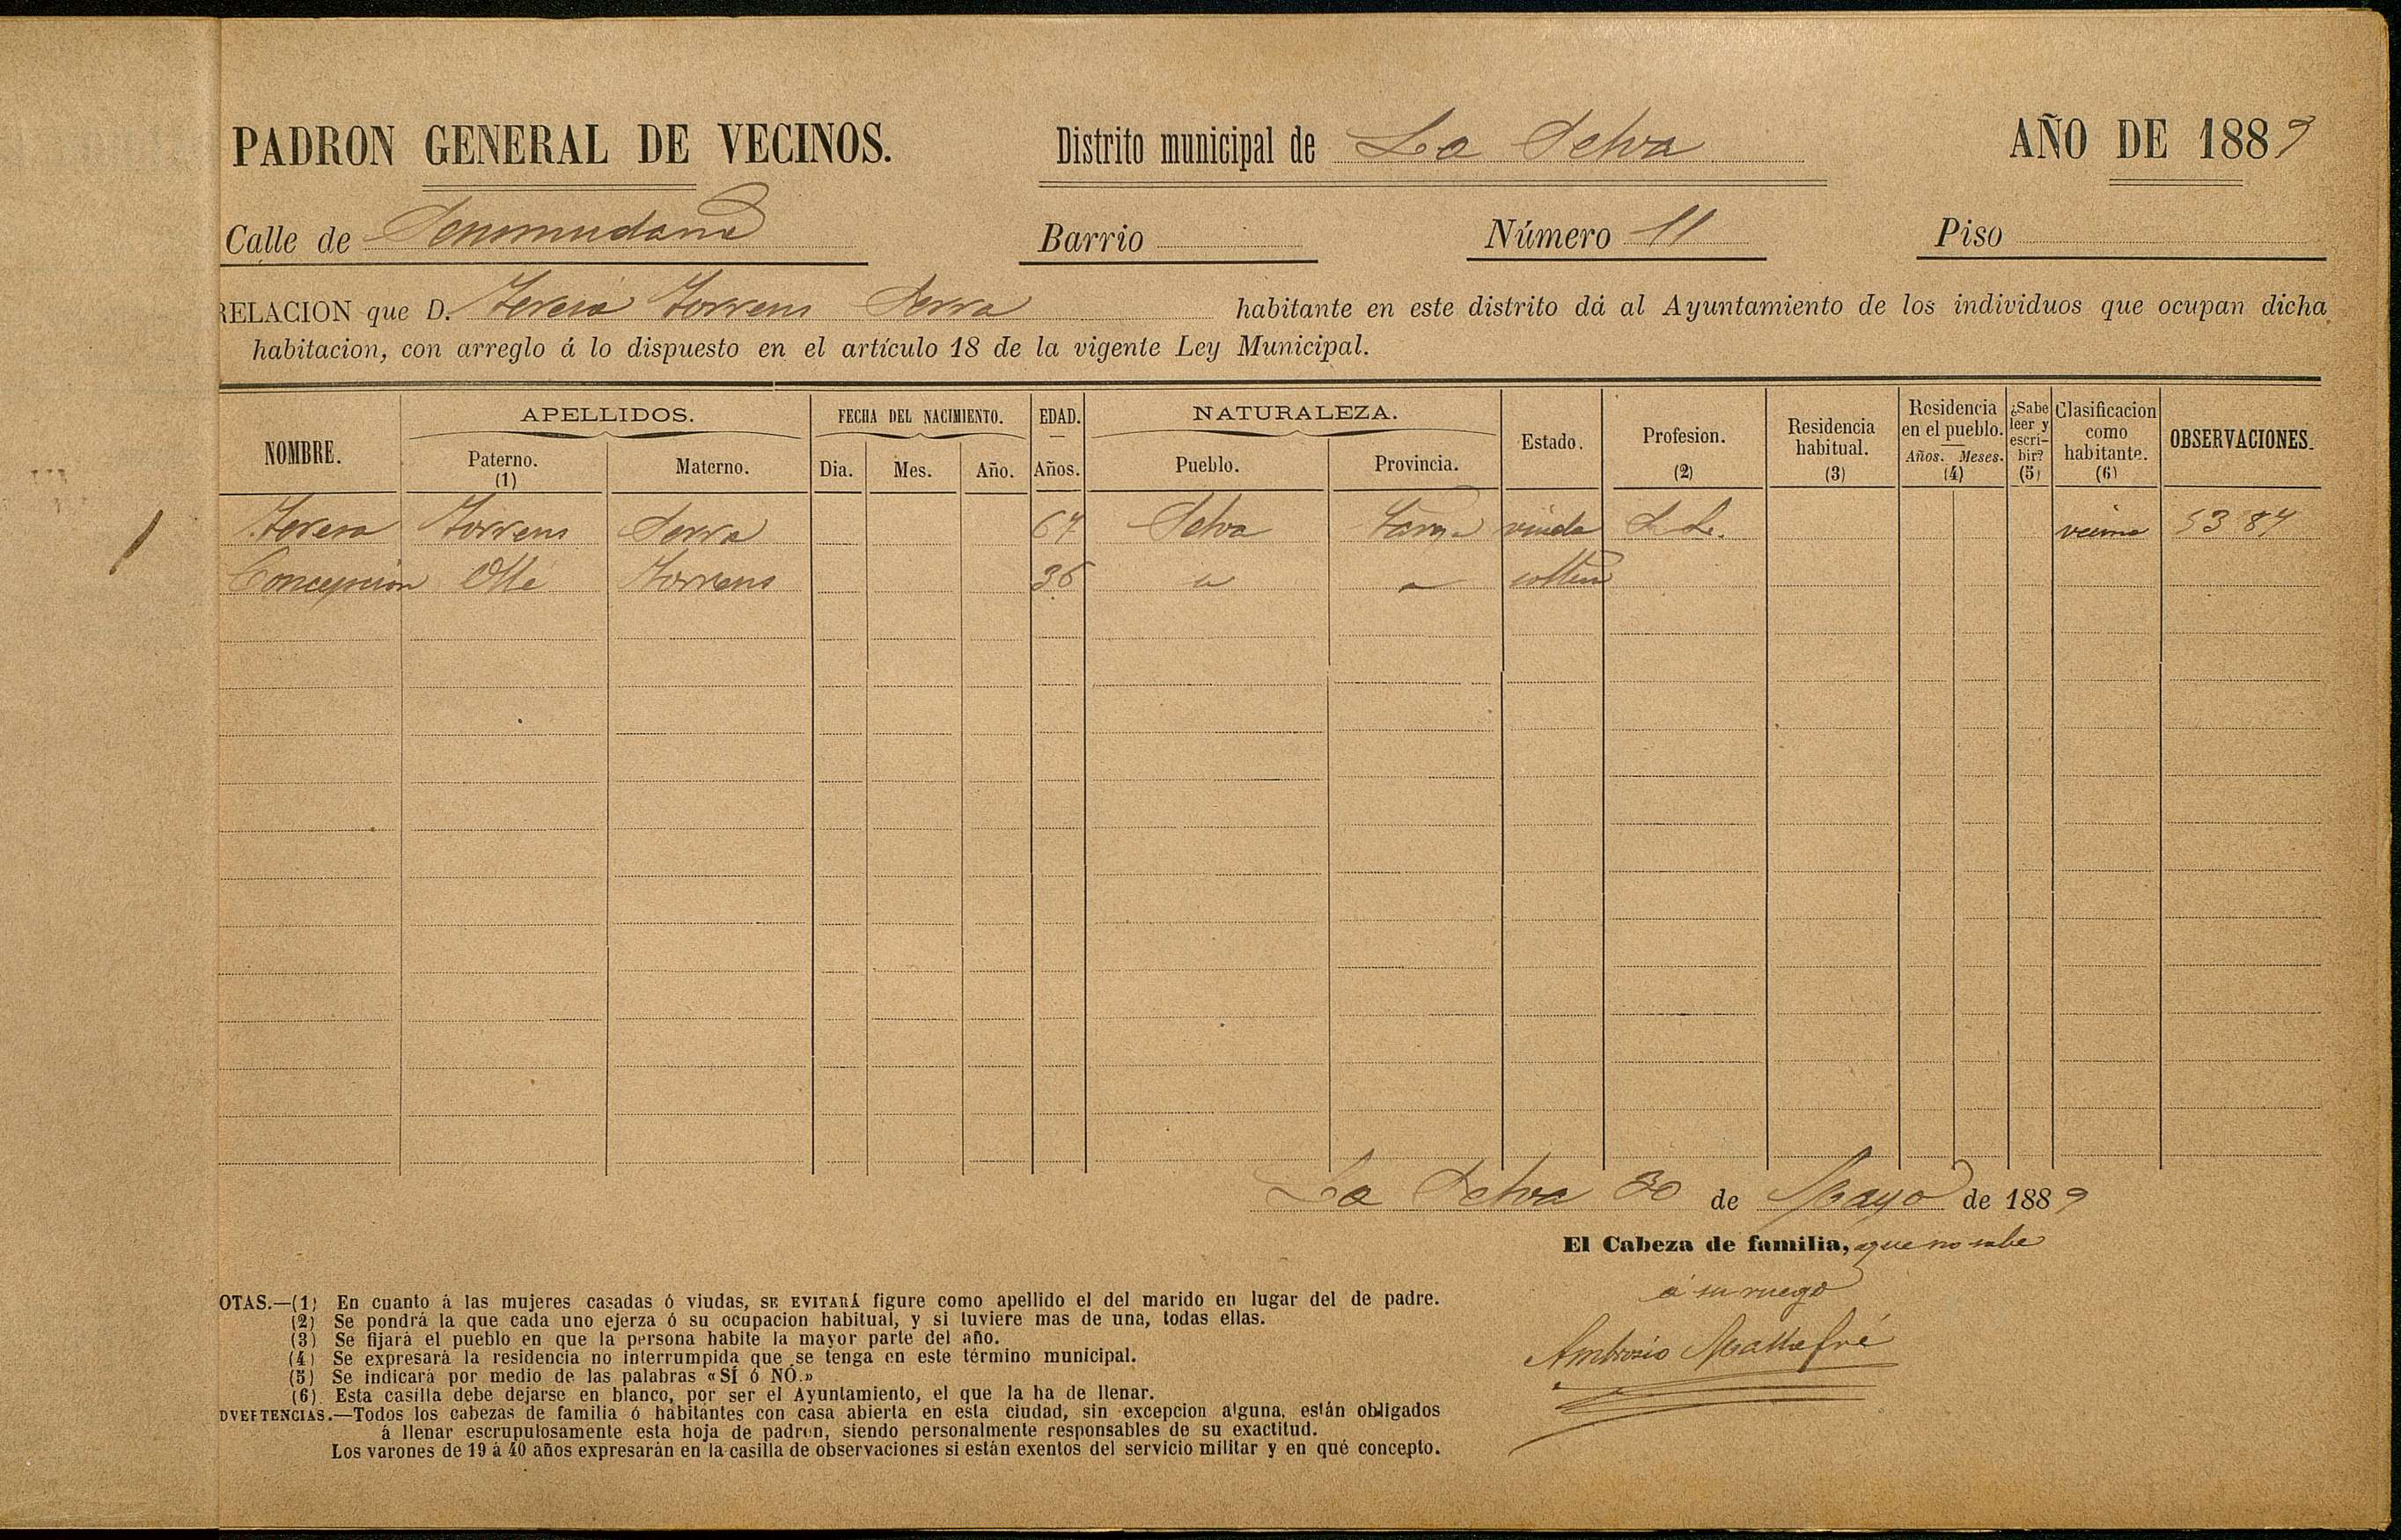 PADRON GENERAL DE VECINOS. Distrito municipal de La Selva AÑO DE 1889
Calle de Barrio Número 11 Piso
RELACION que D. Teresa Torrens Serra habitante en este distrito dá al Ayuntamiento de los individuos que ocupan dicha
habitacion, con arreglo á lo dispuesto en el artículo 18 de la vigente Ley Municipal.
NOMBRE. APELLIDOS. FECHA DEL NACIMIENTO. EDAD. NATURALEZA. Estado. Profesion. (2) Residencia habitual. (3) Residencia en el pueblo. Años. Meses. (4) ¿Sabe leer y escribir? (5) Clasificacion como habitante. (6) OBSERVACIONES.
Paterno. (1) Materno. Dia. Mes. Año. Años. Pueblo. Provincia.
Teresa Torrens Serra 67 Selva viuda S. L. vecina 53 87
Concepcion Olle Torrens 36 " " soltera
La Selva 30 de Mayo de 1889
El Cabeza de familia, que no sabe
á su ruego
Ambrosio Mallafré
OTAS.—(1) En cuanto á las mujeres casadas ó viudas, SE EVITARÁ figure como apellido el del marido en lugar del de padre.
(2) Se pondrá la que cada uno ejerza ó su ocupacion habitual, y si tuviere mas de una, todas ellas.
(3) Se fijará el pueblo en que la persona habite la mayor parte del año.
(4) Se expresará la residencia no interrumpida que se tenga en este término municipal.
(5) Se indicará por medio de las palabras «SÍ ó NÓ.»
(6) Esta casilla debe dejarse en blanco, por ser el Ayuntamiento, el que la ha de llenar.
DVERTENCIAS.—Todos los cabezas de familia ó habitantes con casa abierta en esta ciudad, sin excepcion alguna, están obligados
á llenar escrupulosamente esta hoja de padron, siendo personalmente responsables de su exactitud.
Los varones de 19 á 40 años expresarán en la casilla de observaciones si están exentos del servicio militar y en qué concepto.